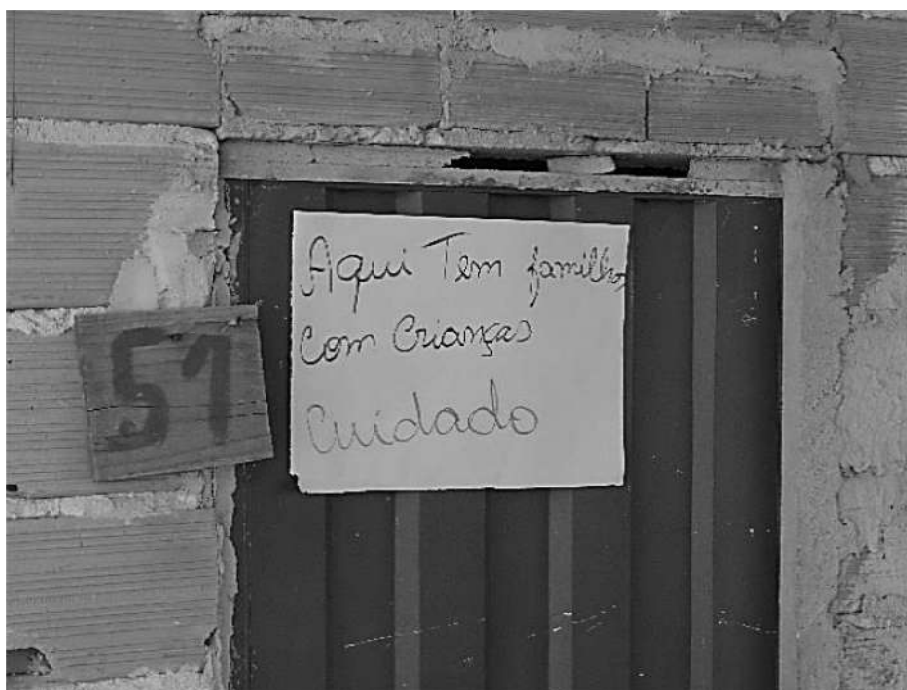 Aqui Tem familha
com Crianças
Cuidado
51